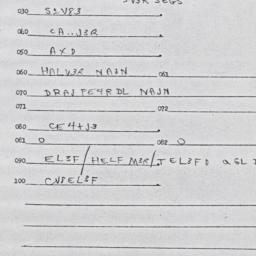 030 S2V83
040 CA..J3R
050 AXD
060 HALV3R NAJN 061
070 DRAJ PE4R DL NAJN
071 072
080 CE4+J3
081 0 082 0
090 EL3F/HELF M3R/J EL3FD
100 CN8EL3F